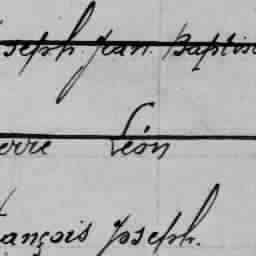 oseph Jean Baptis
erre Léon
ançois Joseph.